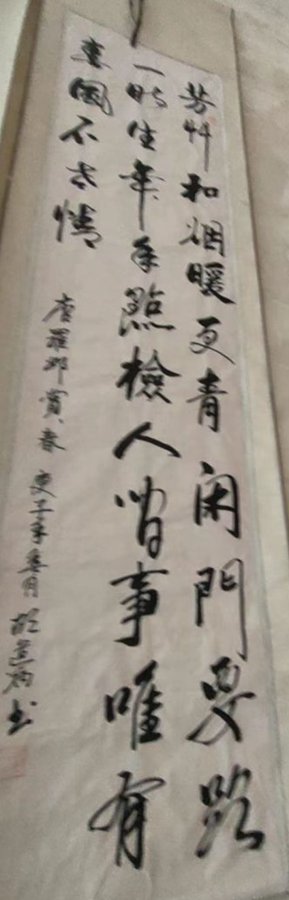 芳艸和烟暖更青闲門要路
一時生年年點檢人间事唯有
東風不世情
唐羅鄴賞春 庚子年 月 胡 书